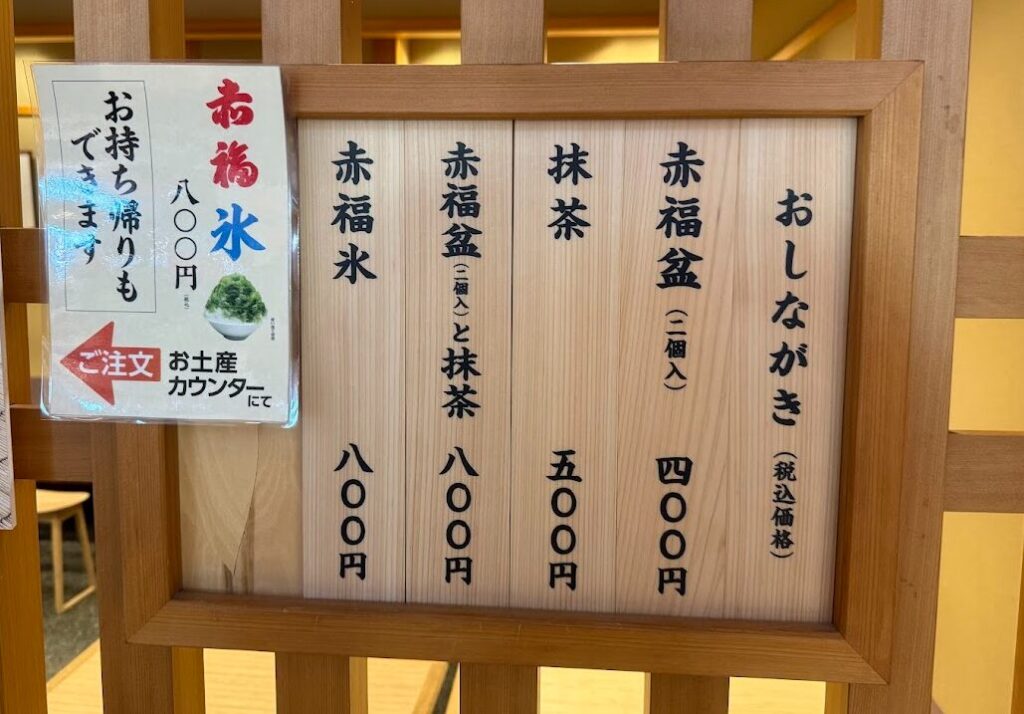 おしながき（税込価格）
赤福盆（二個入） 四〇〇円
抹茶 五〇〇円
赤福盆（二個入）と抹茶 八〇〇円
赤福氷 八〇〇円
赤福氷
八〇〇円
お持ち帰りも
できます
ご注文
お土産
カウンターにて